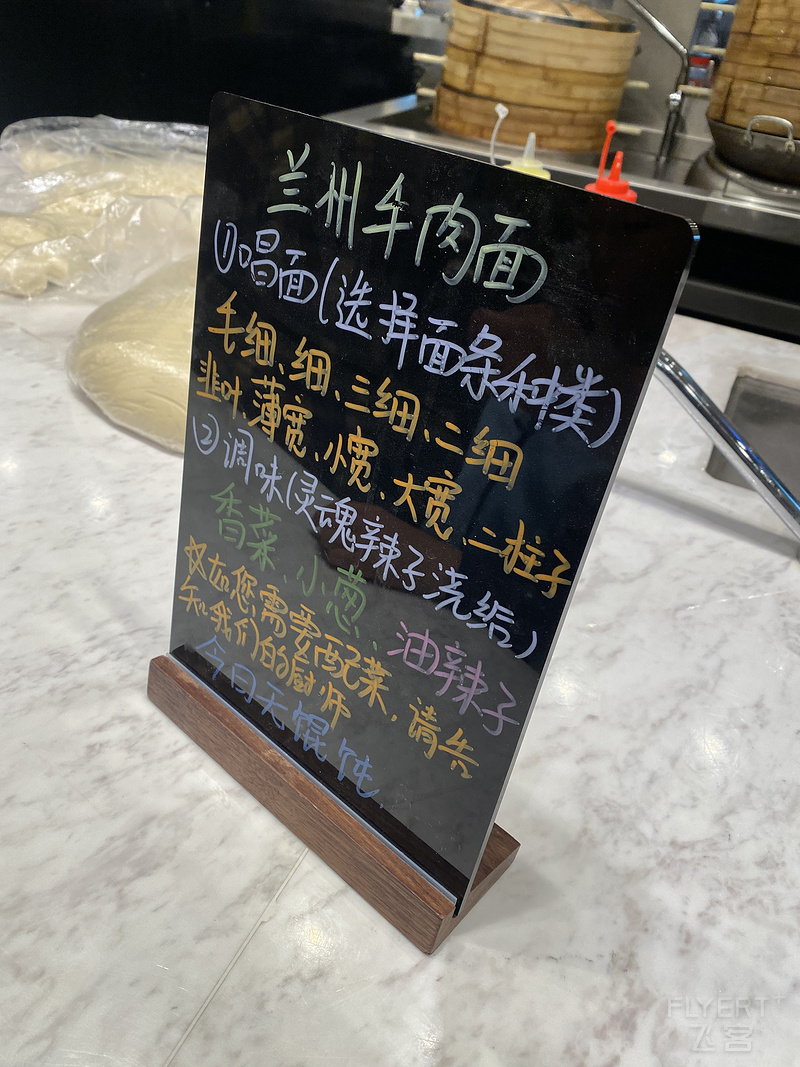 兰州牛肉面
①唱面(选择面条种类)
毛细、细、三细、二细
韭叶、薄宽、小宽、大宽、二柱子
②调味(灵魂辣子浇给)
香菜、小葱、油辣子
如您需要配菜，请告
知我们的厨师
今日无馄饨.
FLYERT+
飞客